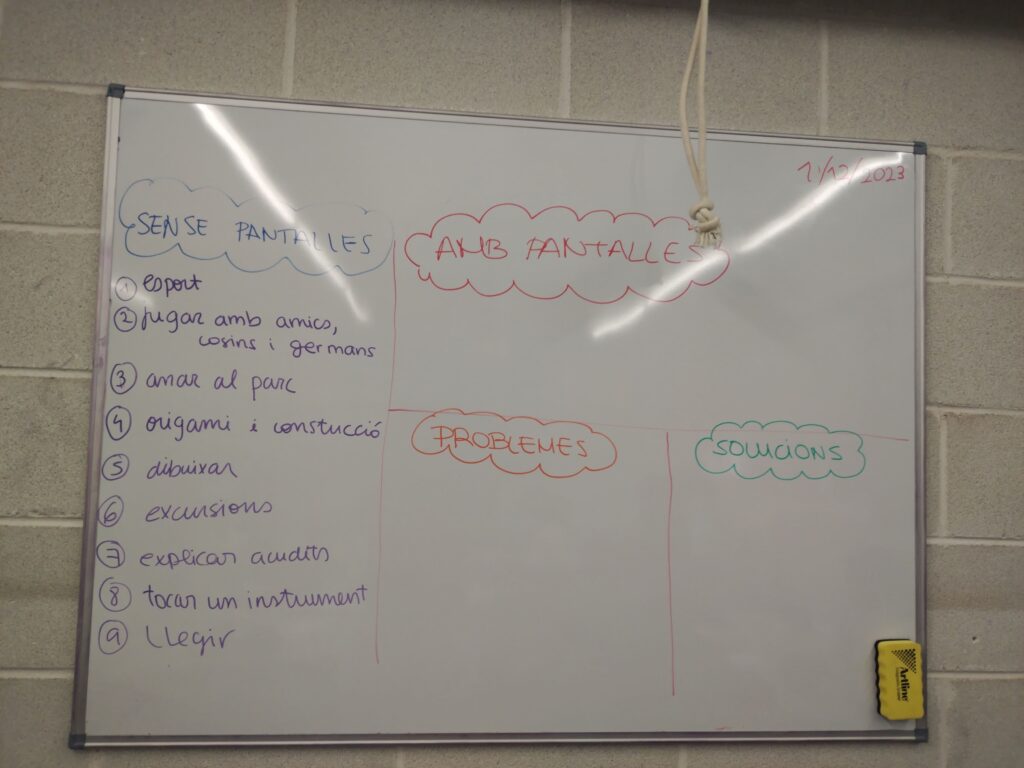 11/12/2023
SENSE PANTALLES
1 esport
2 jugar amb amics,
cosins i germans
3 anar al parc
4 origami i constucció
5 dibuixar
6 excursions
7 explicar acudits
8 tocar un instrument
9 llegir
AMB PANTALLES
PROBLEMES
SOLUCIONS
Artline